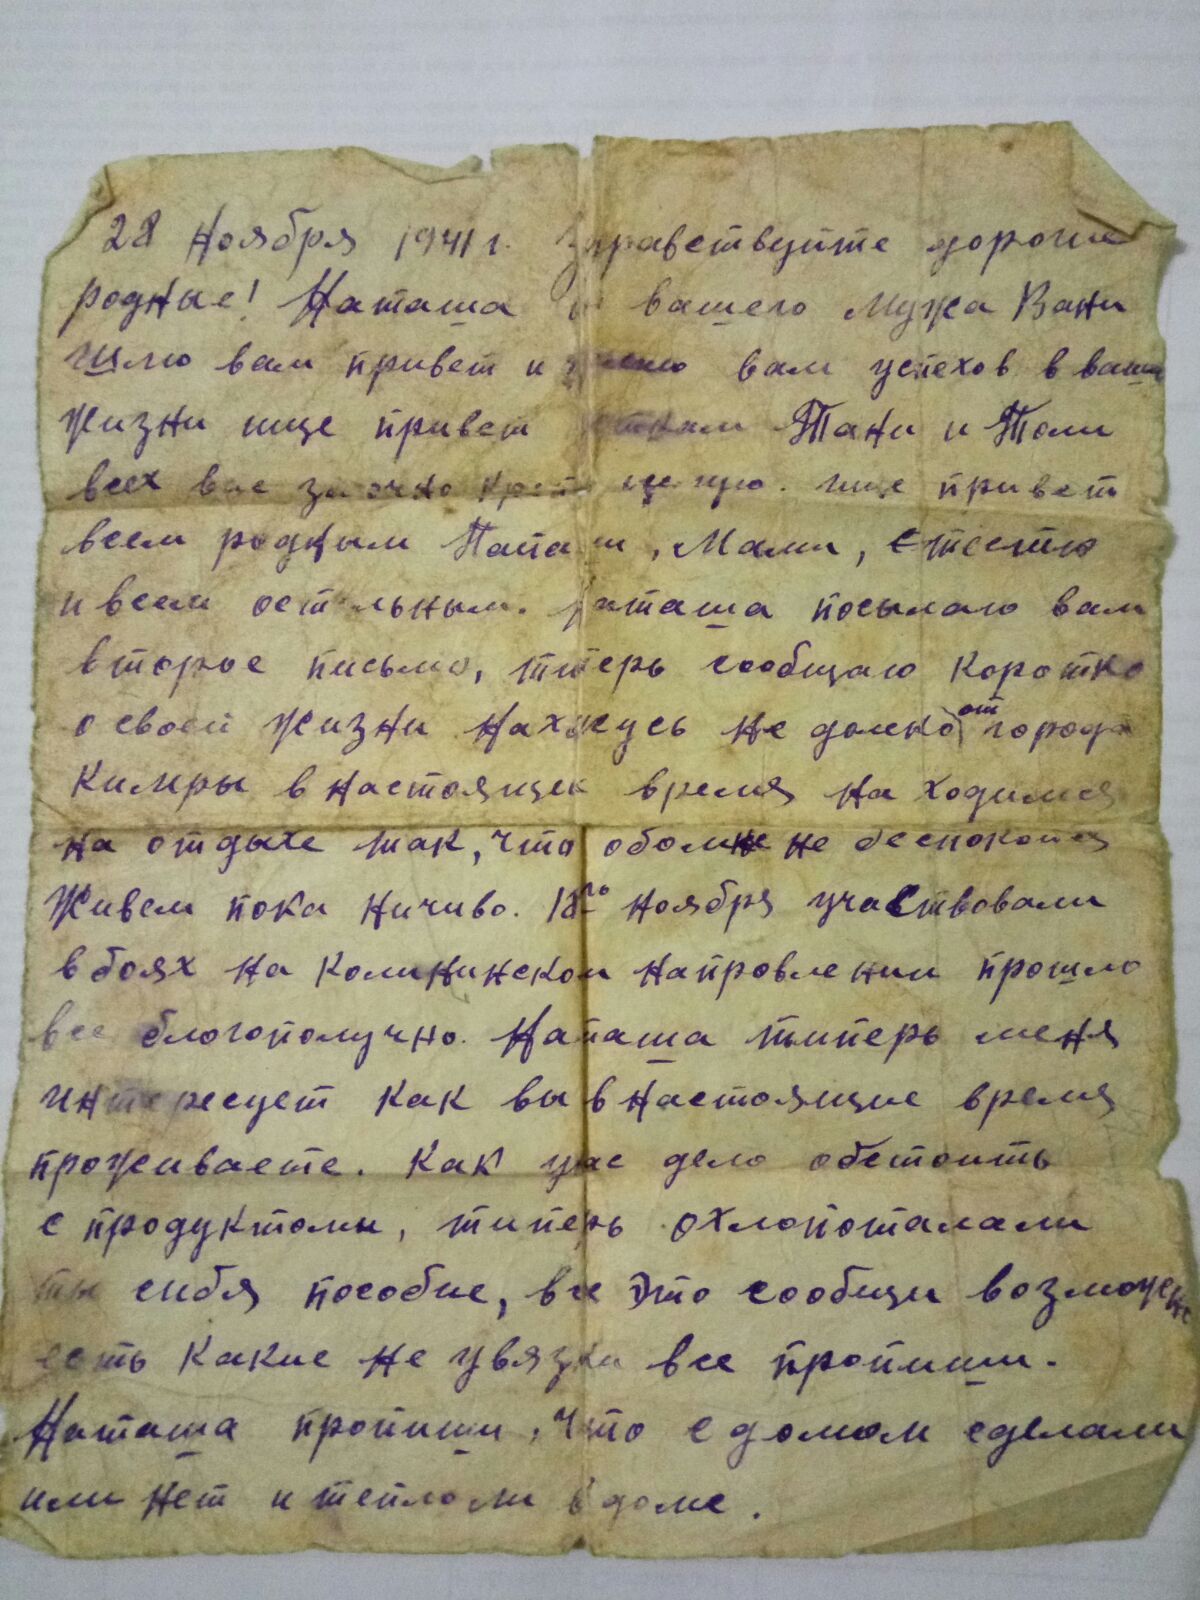 28 Ноября 1941 г. Здравствуйте дорогие
родные! Наташа вашего Мужа Вани
шлю вам привет и желаю вам успехов в ваши
жизни ище привет деткам Тани и Толи
всех вас заочно креп целую. ище привет
всем родным Папаши, Мами, Стестю
и всем остальным. Наташа посылаю вам
второе письмо, типерь сообщаю коротко
о своей жизни нахжусь не далеко от города
Кимры в настоящек время на ходимся
на отдыхе так, что обомне не беспокойся
живем пока ничиво. 18го ноября участвовали
в боях на Колининском напровлении прошло
все благополучно. Наташа типерь меня
интересует как вы в настоящие время
проживаете. Как увас дело обстоить
с продуктомы, типерь охлопоталали
ты сибя пособие, все это сообщи возможно
есть какие не увязки все пропиши.
Наташа пропиши, что с домом сделали
или нет и теплоли в доме.